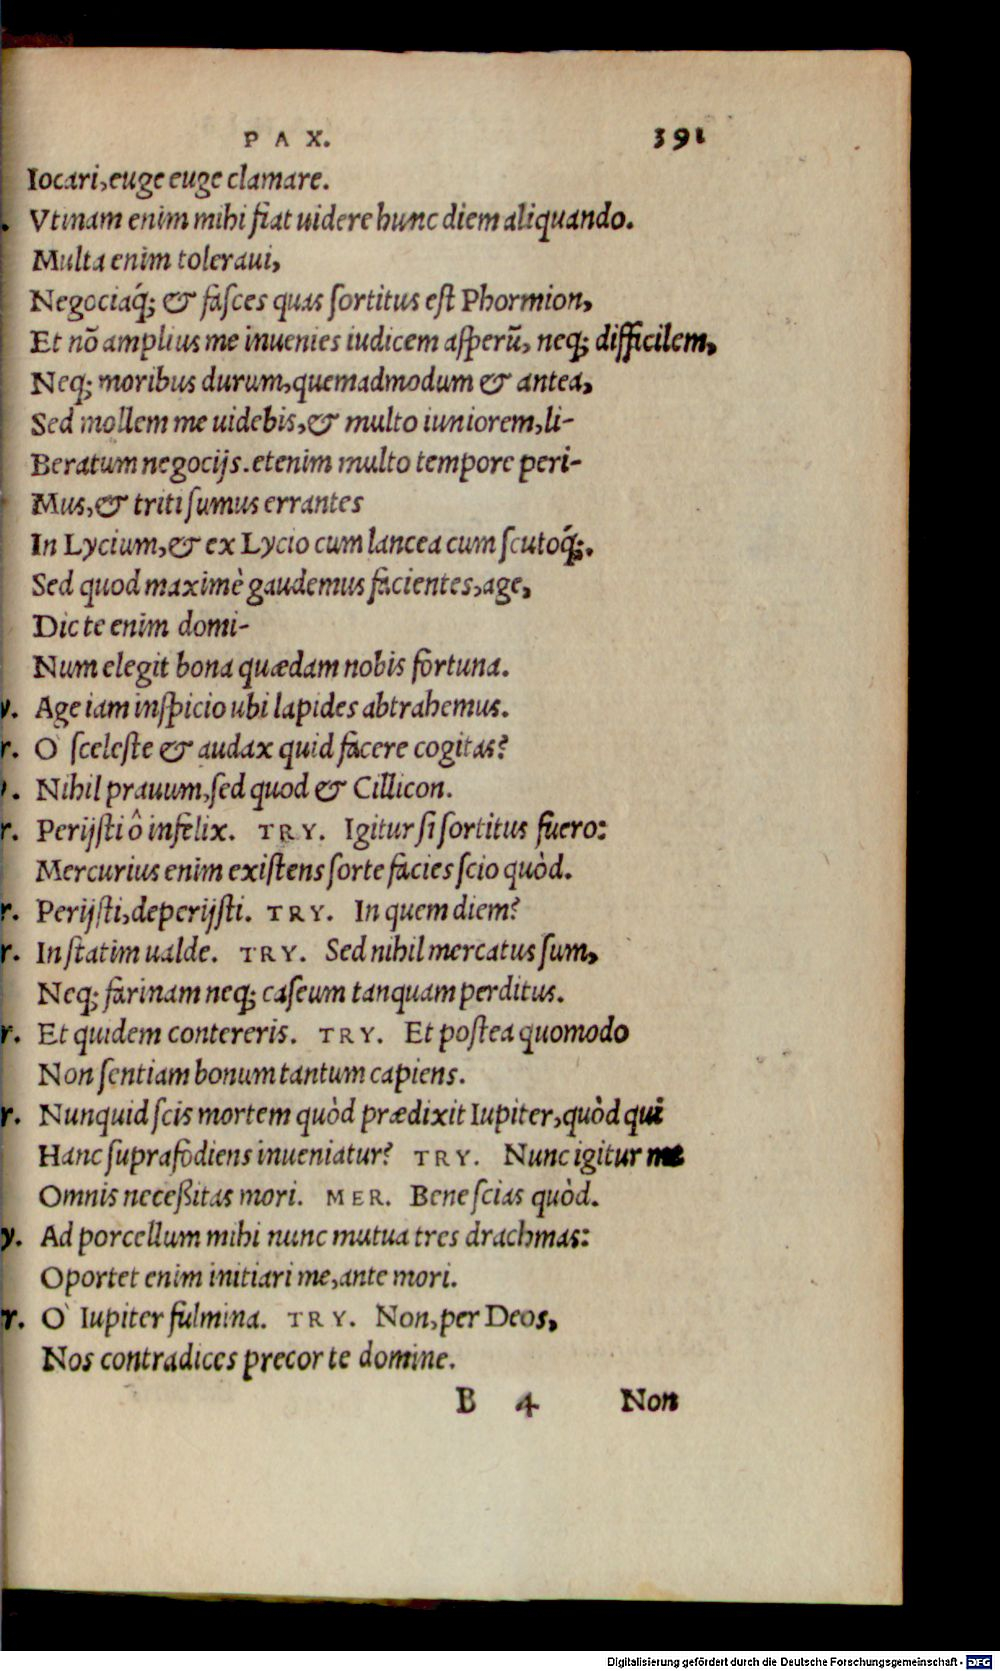 PAX. 391
Iocari, euge euge clamare.
. Vtinam enim mihi fiat uidere hunc diem aliquando.
Multa enim toleraui,
Negociaq́; & fasces quas sortitus est Phormion,
Et nō amplius me inuenies iudicem asperū, neq; difficilem,
Neq; moribus durum, quemadmodum & antea,
Sed mollem me uidebis, & multo iuniorem, li-
Beratum negocijs. etenim multo tempore peri-
Mus, & triti sumus errantes
In Lycium, & ex Lycio cum lancea cum scutoq́;.
Sed quod maximè gaudemus facientes, age,
Dic te enim domi-
Num elegit bona quædam nobis fortuna.
y. Age iam inspicio ubi lapides abtrahemus.
r. O' sceleste & audax quid facere cogitas?
. Nihil prauum, sed quod & Cillicon.
r. Perijsti ô infelix. TRY. Igitur si sortitus fuero:
Mercurius enim existens sorte facies scio quòd.
r. Perijsti, deperijsti. TRY. In quem diem?
r. In statim ualde. TRY. Sed nihil mercatus sum,
Neq; farinam neq; caseum tanquam perditus.
r. Et quidem contereris. TRY. Et postea quomodo
Non sentiam bonum tantum capiens.
r. Nunquid scis mortem quòd prædixit Iupiter, quòd qui
Hanc suprafodiens inueniatur? TRY. Nunc igitur me
Omnis necessitas mori. MER. Bene scias quòd.
y. Ad porcellum mihi nunc mutua tres drachmas:
Oportet enim initiari me, ante mori.
r. O' Iupiter fulmina. TRY. Non, per Deos,
Nos contradices precor te domine.
B 4 Non
Digitalisierung gefördert durch die Deutsche Forschungsgemeinschaft - DFG